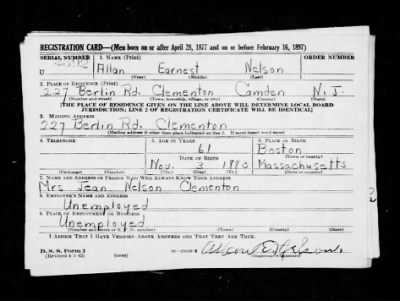 REGISTRATION CARD—(Men born on or after April 28, 1877 and on or before February 16, 1897)
SERIAL NUMBER 1. NAME (Print) ORDER NUMBER
U Allan Earnest Nelson
(First) (Middle) (Last)
2. PLACE OF RESIDENCE (Print)
227 Berlin Rd. Clementon Camden N.J.
(Number and street) (Town, township, village, or city) (County) (State)
[THE PLACE OF RESIDENCE GIVEN ON THE LINE ABOVE WILL DETERMINE LOCAL BOARD
JURISDICTION; LINE 2 OF REGISTRATION CERTIFICATE WILL BE IDENTICAL]
3. MAILING ADDRESS
227 Berlin Rd. Clementon
[Mailing address if other than place indicated on line 2. If same insert word same]
4. TELEPHONE 5. AGE IN YEARS 6. PLACE OF BIRTH
61 Boston
DATE OF BIRTH (Town or county)
Nov. 3 Massachusetts
(Exchange) (Number) (Mo.) (Day) (Yr.) (State or country)
7. NAME AND ADDRESS OF PERSON WHO WILL ALWAYS KNOW YOUR ADDRESS
Mrs Jean Nelson Clementon
8. EMPLOYER'S NAME AND ADDRESS
Unemployed
9. PLACE OF EMPLOYMENT OR BUSINESS
Unemployed
(Number and street or R. F. D. number) (Town) (County) (State)
I AFFIRM THAT I HAVE VERIFIED ABOVE ANSWERS AND THAT THEY ARE TRUE.
D. S. S. Form 1
(Revised 4-1-42) (over) (Registrant's signature)